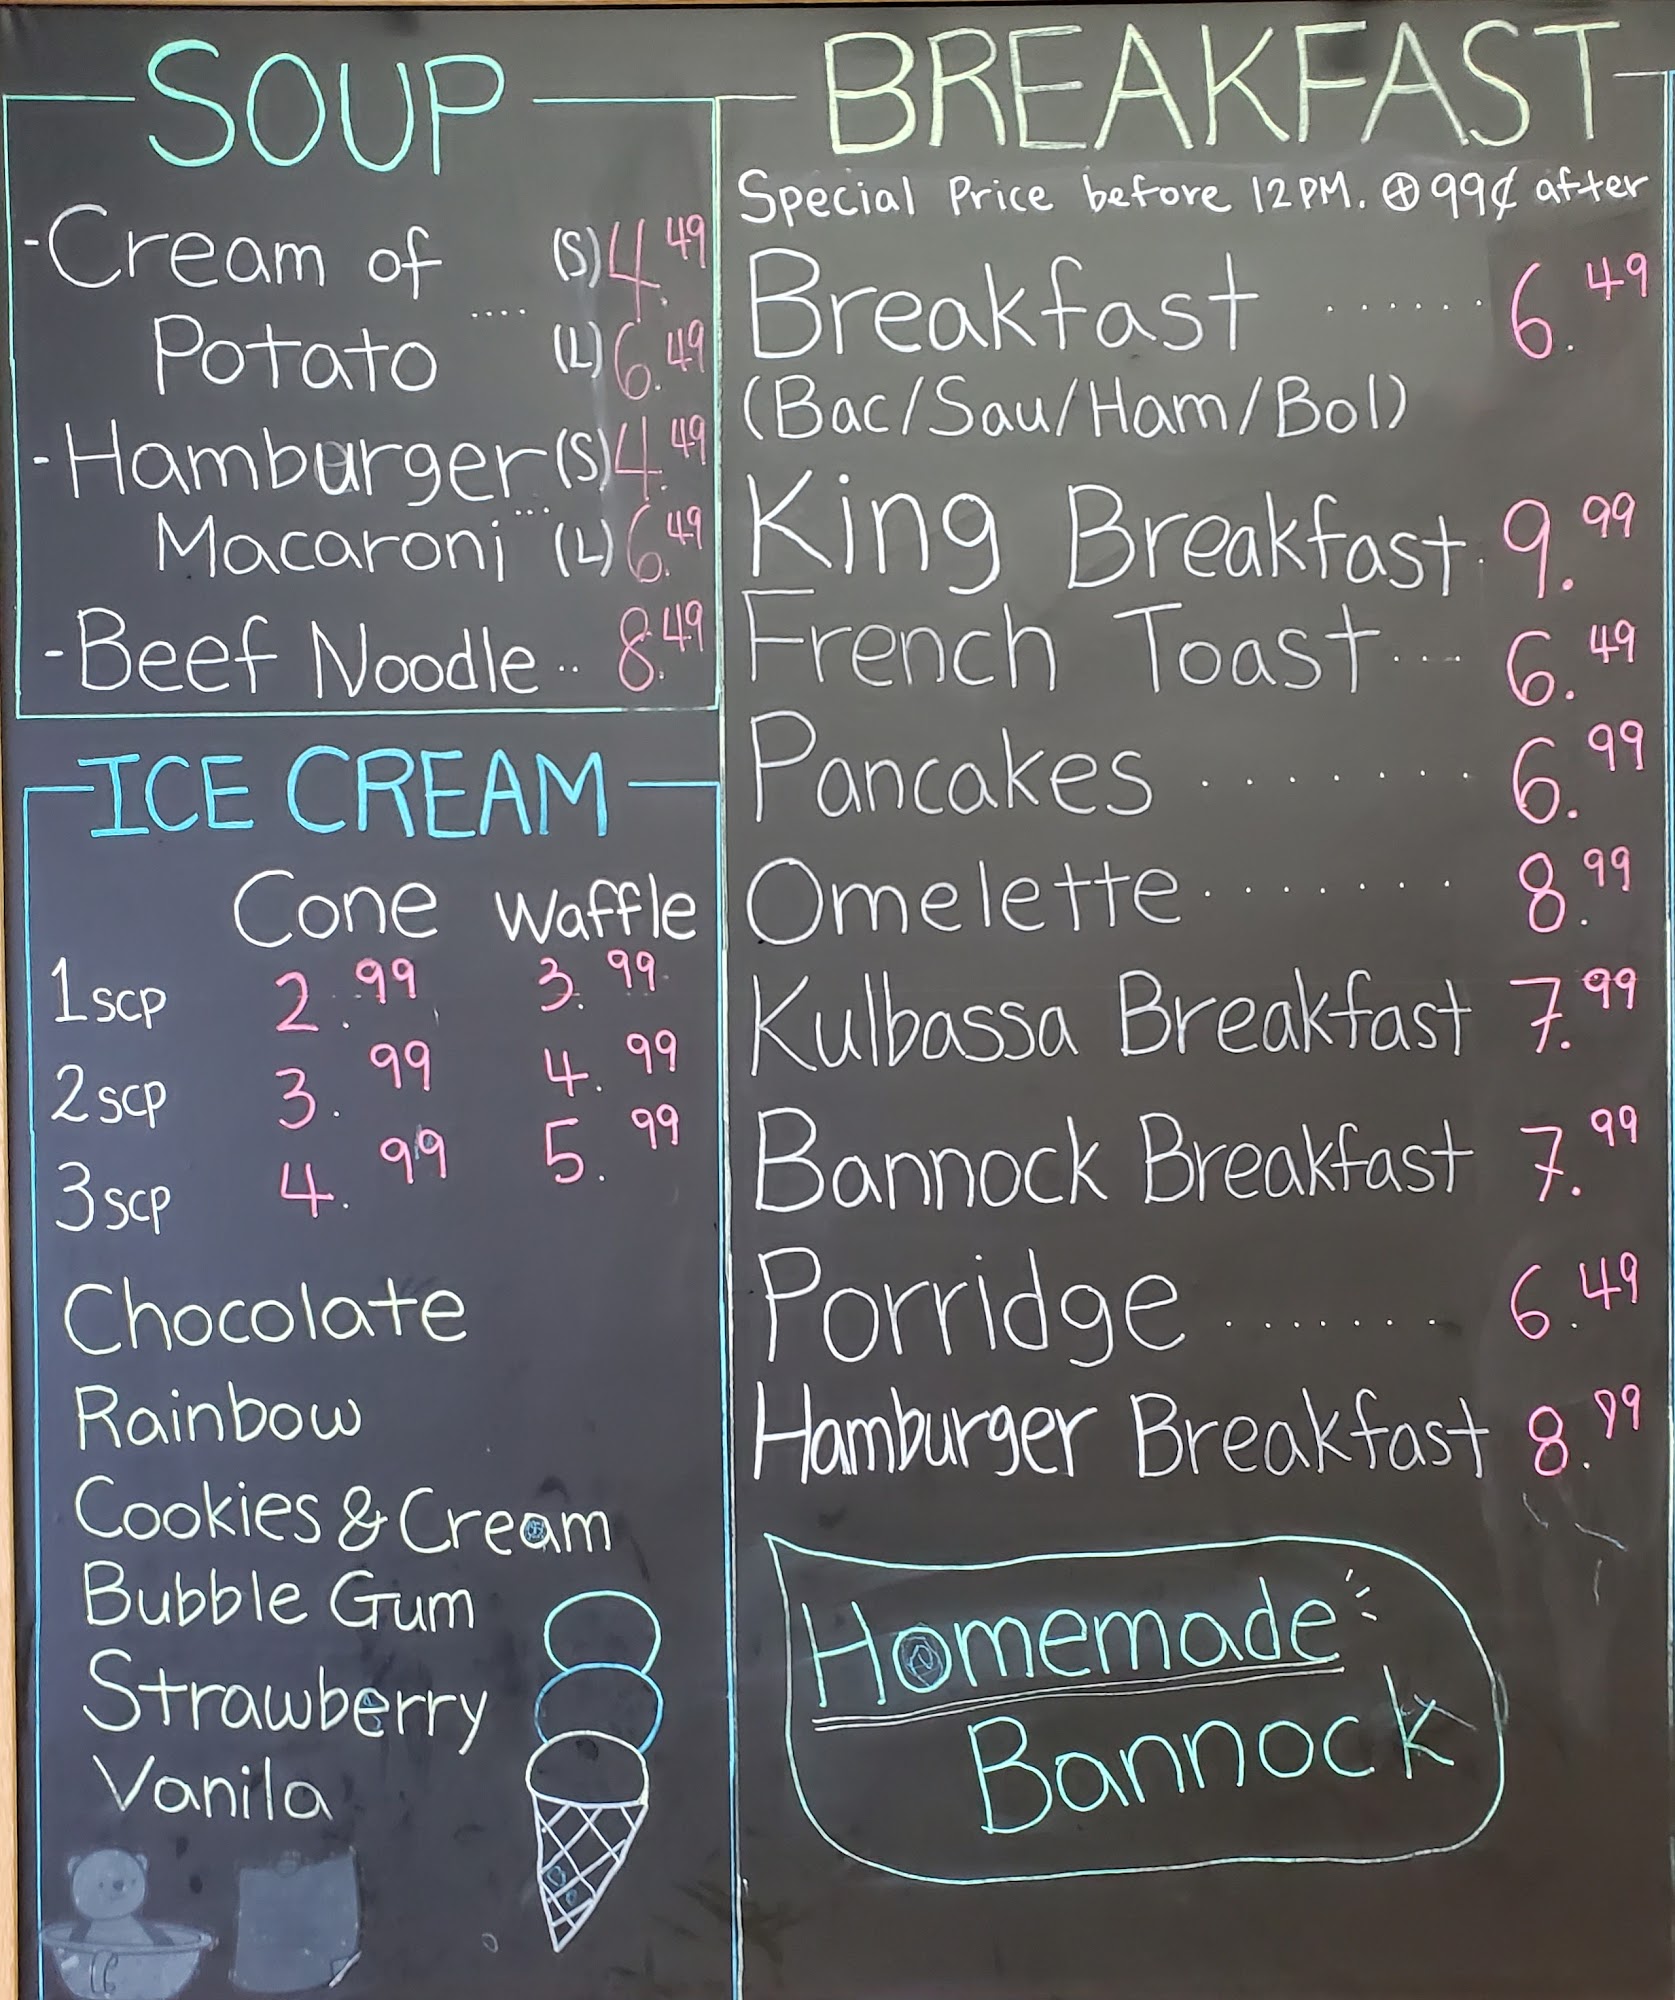 SOUP
-Cream of (S) 4.49
Potato .... (L) 6.49
-Hamburger (S) 4.49
Macaroni ... (L) 6.49
-Beef Noodle .. 8.49
ICE CREAM
Cone Waffle
1scp 2.99 3.99
2scp 3.99 4.99
3scp 4.99 5.99
Chocolate
Rainbow
Cookies & Cream
Bubble Gum
Strawberry
Vanila
BREAKFAST
Special Price before 12PM. ⊕ 99¢ after
Breakfast ...... 6.49
(Bac/Sau/Ham/Bol)
King Breakfast. 9.99
French Toast... 6.49
Pancakes ........ 6.99
Omelette ........ 8.99
Kulbassa Breakfast 7.99
Bannock Breakfast 7.99
Porridge ....... 6.49
Hamburger Breakfast 8.99
Homemade
Bannock